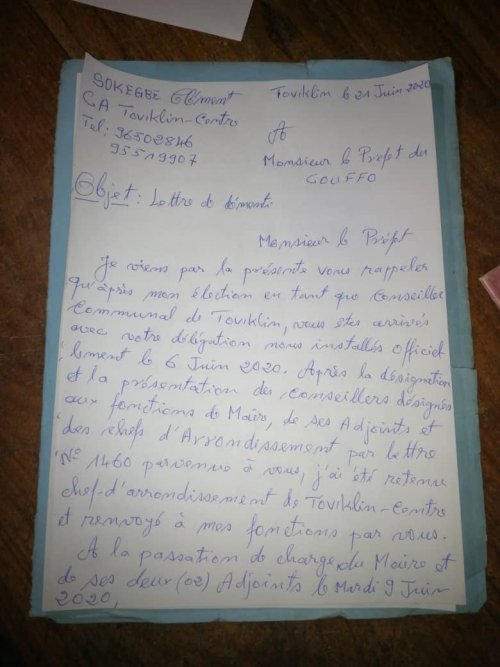 SOKEGBE Clément
CA Toviklin-Centre
Tel: 96502846
95519907
Toviklin le 21 Juin 2020
A
Monsieur le Préfet du
COUFFO
Objet : Lettre de démenti
Monsieur le Préfet
Je viens par la présente vous rappeler
qu'après mon élection en tant que conseiller
Communal de Toviklin, vous êtes arrivés
avec votre délégation nous installés officiel
lement le 6 Juin 2020. Après la désignation
et la présentation des conseillers désignés
aux fonctions de Maire, de ses Adjoints et
des chefs d'Arrondissement par lettre
N° 1460 parvenue à vous, j'ai été retenu
chef-d'arrondissement de Toviklin-Centre
et renvoyé à mes fonctions par vous.
A la passation de charge du Maire et
de ses deux (02) Adjoints le Mardi 9 Juin
2020,